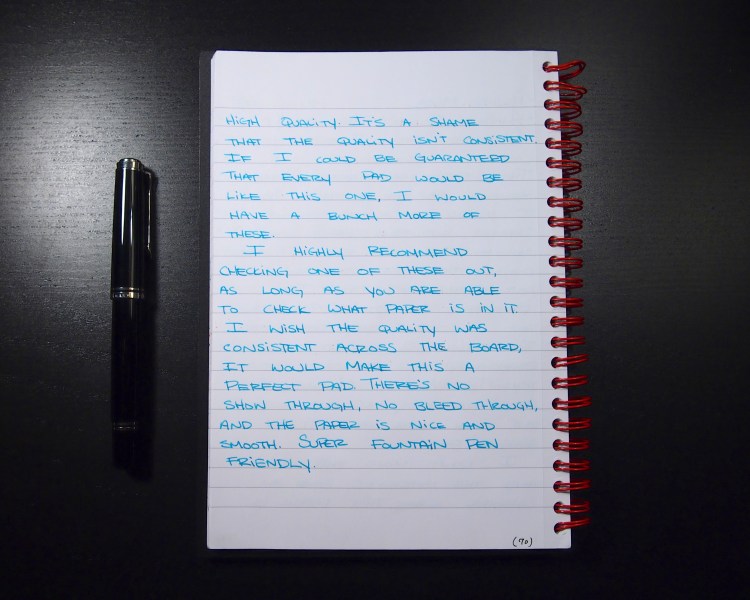 HIGH QUALITY. IT'S A SHAME
THAT THE QUALITY ISN'T CONSISTENT.
IF I COULD BE GUARANTEED
THAT EVERY PAD WOULD BE
LIKE THIS ONE, I WOULD
HAVE A BUNCH MORE OF
THESE.
I HIGHLY RECOMMEND
CHECKING ONE OF THESE OUT,
AS LONG AS YOU ARE ABLE
TO CHECK WHAT PAPER IS IN IT.
I WISH THE QUALITY WAS
CONSISTENT ACROSS THE BOARD,
IT WOULD MAKE THIS A
PERFECT PAD. THERE'S NO
SHOW THROUGH, NO BLEED THROUGH,
AND THE PAPER IS NICE AND
SMOOTH. SUPER FOUNTAIN PEN
FRIENDLY.
(70)